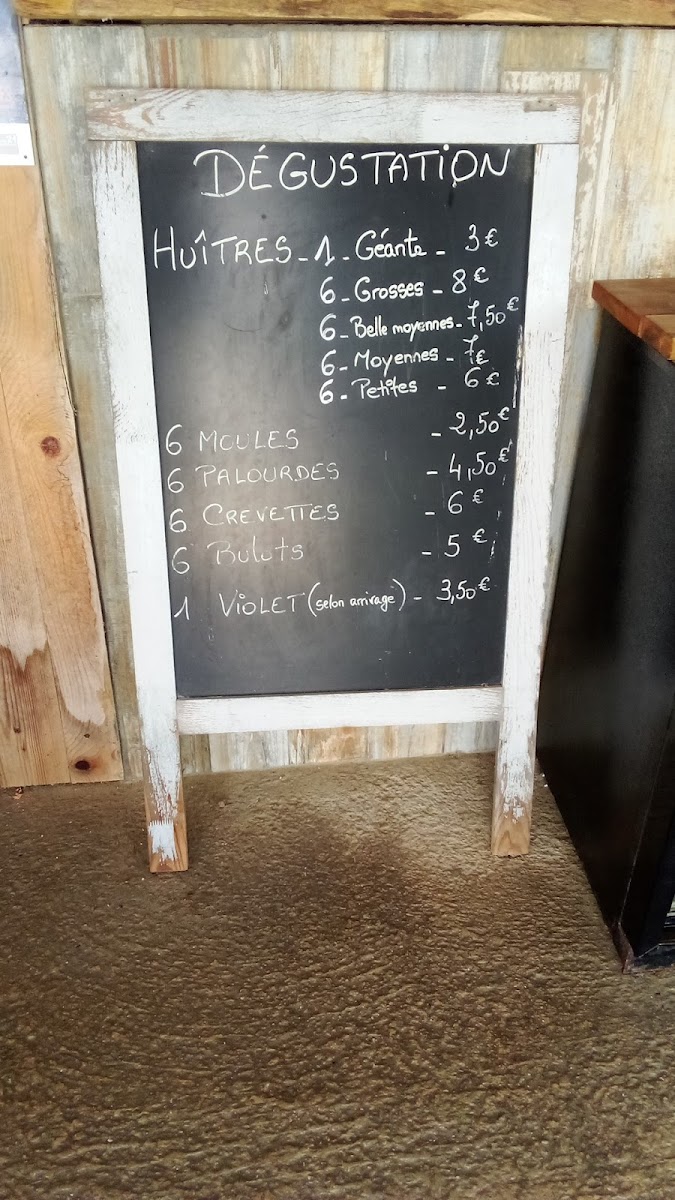 DÉGUSTATION
HUÎTRES - 1 - Géante - 3 €
6 - Grosses - 8 €
6 - Belle moyennes - 7,50 €
6 - Moyennes - 7 €
6 - Petites - 6 €
6 MOULES - 2,50 €
6 PALOURDES - 4,50 €
6 CREVETTES - 6 €
6 Bulots - 5 €
1 VIOLET (selon arrivage) - 3,50 €